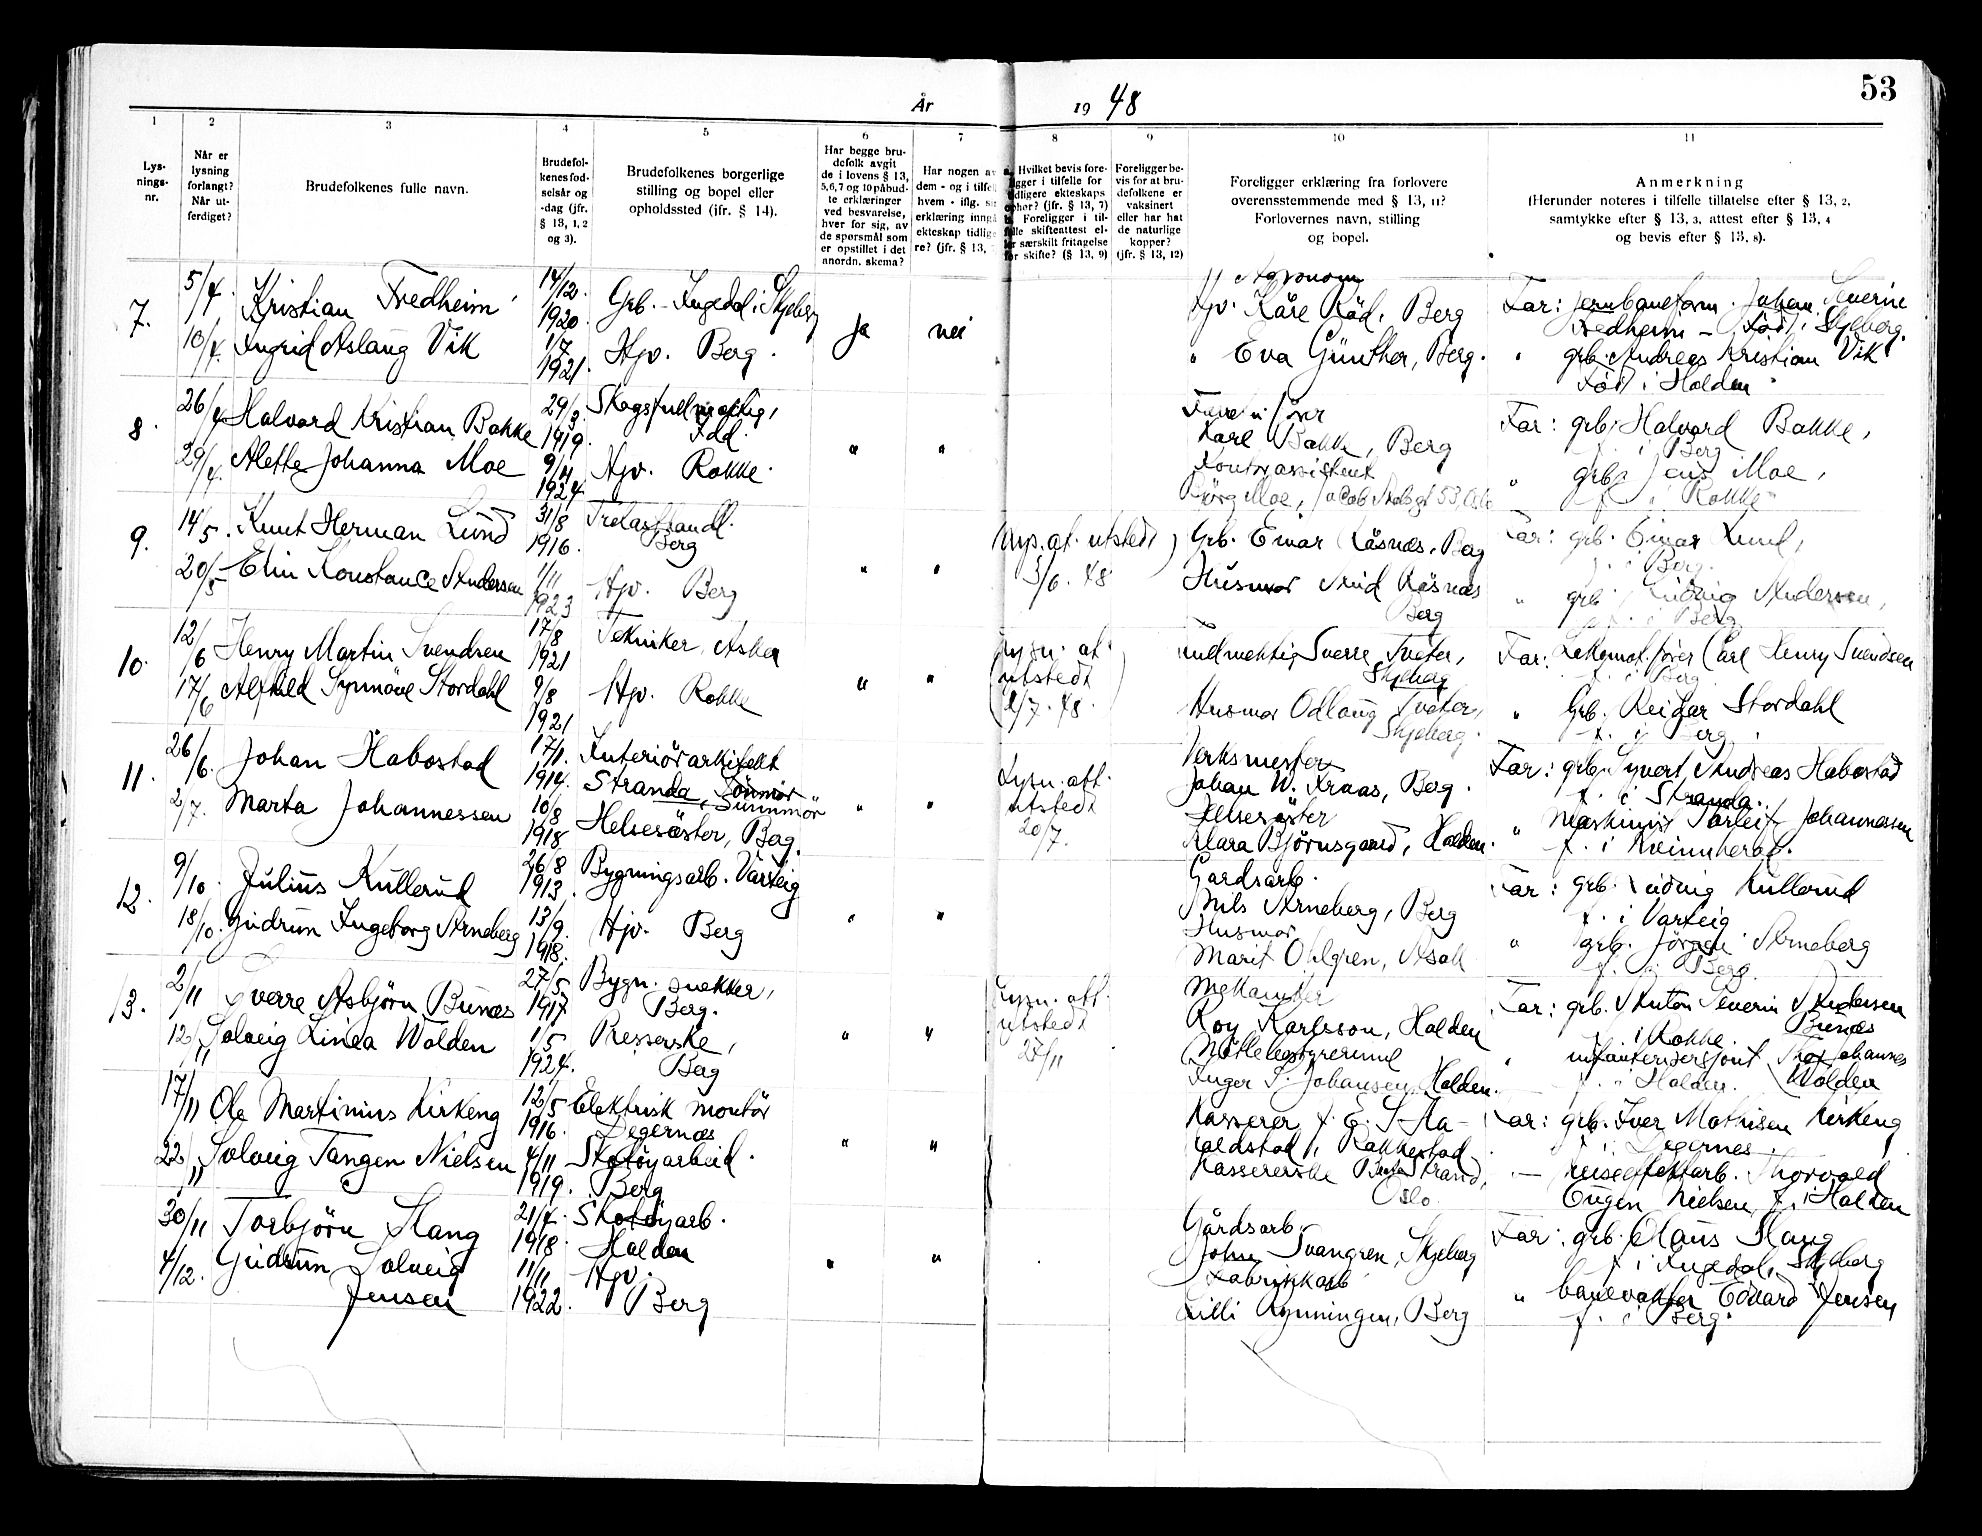 53
År 1948
1 2 3 4 5 6 7 8 9 10 11
Lys-
nings-
nr.
Når er
lysning
forlangt?
Når ut-
ferdiget?
Brudefolkenes fulle navn.
Brudefol-
kenes fød-
selsår og
-dag (jfr.
§ 13, 1, 2
og 3).
Brudefolkenes borgerlige
stilling og bopel eller
opholdssted (jfr. § 14).
Har begge bru-
defolk avgit
de i lovens § 13,
5,6,7 og 10 påbud-
te erklæringer
ved besvarelse,
hver for sig, av
de spørsmål som
er opstillet i det
anordn. skema?
Har nogen av
dem - og i tilfel
hvem - iflg.
erklæring inngå
ekteskap tidlige
re? (jfr. § 13,
Hvilket bevis fore-
ligger i tilfelle for
tidligere ekteskaps
ophør? (jfr. § 13, 7)
Foreligger i til-
felle skifteattest el-
ler særskilt fritagelse
for skifte? (§ 13, 9)
Foreligger be-
vis for at bru-
defolkene er
vaksinert
eller har hat
de naturlige
kopper?
(jfr. § 13, 12)
Foreligger erklæring fra forlovere
overensstemmende med § 13, 11?
Forlovernes navn, stilling
og bopel.
Anmerkning
(Herunder noteres i tilfelle tillatelse efter § 13, 2,
samtykke efter § 13, 3, attest efter § 13, 4
og bevis efter § 13, 8).
7. 5/4 Kristian Fredheim 14/12 1920 Grb. - Ingedal i Skjeberg ja nei Agronom Kåre Råd, Berg Far: jernbaneform. Johan Severin Fredheim - Född i Skjeberg.
10/4 Ingrid Aslaug Vik 1/7 1921 Hjv. Berg. " Eva Günther, Berg. " grb. Andreas Kristian Vik Född i Halden
8. 26/4 Halvard Kristian Bakke 29/3 1919. Skogsfullmektig, Idd. " " Karl Bakke, Berg Far: grb. Halvard Bakke, f. i Berg
29/4. Alette Johanna Moe 9/11 1924 Hjv. Rokke. Kontorassistent Moe, 53, Oslo " grb. Jens Moe, f. i Rokke
9. 14/5. Knut Herman Lund 31/8 1916. Trelasthandl. Berg " " utstedt 5/6. 48 Grb. Einar Råsnæs, Berg Far: grb. Einar Lund, f. i Berg.
20/5 Elin Konstance Andersen 1/11 1923 Hjv. Berg Husmor Råsnæs Berg " grb. Ludvig Andersen, f. i Berg
10. 12/6 Henry Martin Svendsen 17/8 1921 Tekniker, Asker " " Lysn. at. utstedt 2/7. 48. Fullmektig Sverre Tveter, Skjeberg Far: Lokomot.fører Carl Henry Svendsen f. i Berg
17/6 Alfhild Synnöve Stordahl 9/8 1921 Hjv. Rokke Husmor Odlaug Tveter, Skjeberg. " Grb. Reidar Stordahl f. i Berg.
11. 26/6. Johan Habostad 17/1. 1914. Interiörarkitekt Stranda, Sunnmör " " Lysn. att. utstedt 20/7. Verksmester Johan W. Kraas, Berg. Far: grb. Syvert Andreas Habostad f. i Stranda.
2/7. Marta Johannessen 10/8 1918. Helsesöster, Berg. Helsesöster Klara Björnsgaard, Halden. " Maskinist Torleif Johannessen f. i Kvinnherad.
12. 9/10. Julius Kullerud 26/8 1913. Bygningsarb. Varteig " " Gardsarb. Nils Arneberg, Berg Far: grb. Ludvig Kullerud f. i Varteig
18/10. Gudrun Ingeborg Arneberg 13/9. 1918. Hjv. Berg Husmor Marit Ohlgren, Asak " grb. Jörgen Arneberg f. i Berg.
13. 2/11 Sverre Asbjörn Bunæs 27/5 1917 Bygn. snekker, Berg. " " Lysn. att. utstedt 25/11 Mekaniker Roy Karlsson, Halden Far: grb. Anton Severin Andersen Bunæs f. i Rokke.
12/11 Solveig Linea Wolden 1/5 1924. Presserske, Berg Inger S. Johansen, Halden. " infanterisersjant Thor Johannes Wolden f. i Halden.
17/11 Ole Martinius Kirkeng 12/5 1916. Elektrisk montör Degernæs " " Kasserer J. E. S. Aa-
kaldstad, Rakkestad Far: grb. Iver Mathisen Kirkeng f. i Degernes.
22/11 Solveig Tangen Nielsen 4/11 1919. Skotöyarbeid. Berg Kassererske Strand, Oslo. — Thorvald Eugen Nielsen f. i Halden
30/11 Torbjörn Stang 21/4. 1918 Skotöyarb. Halden " " Gårdsarb. John Svangren, Skjeberg Far: grb. Olaus Stang f. i Ingedal, Skjeberg
4/12. Gudrun Solveig Jensen 11/11 1922. Hjv. Berg Fabrikkarb Lilli Rynningen, Berg " banevokter Edvard Jensen f. i Berg.